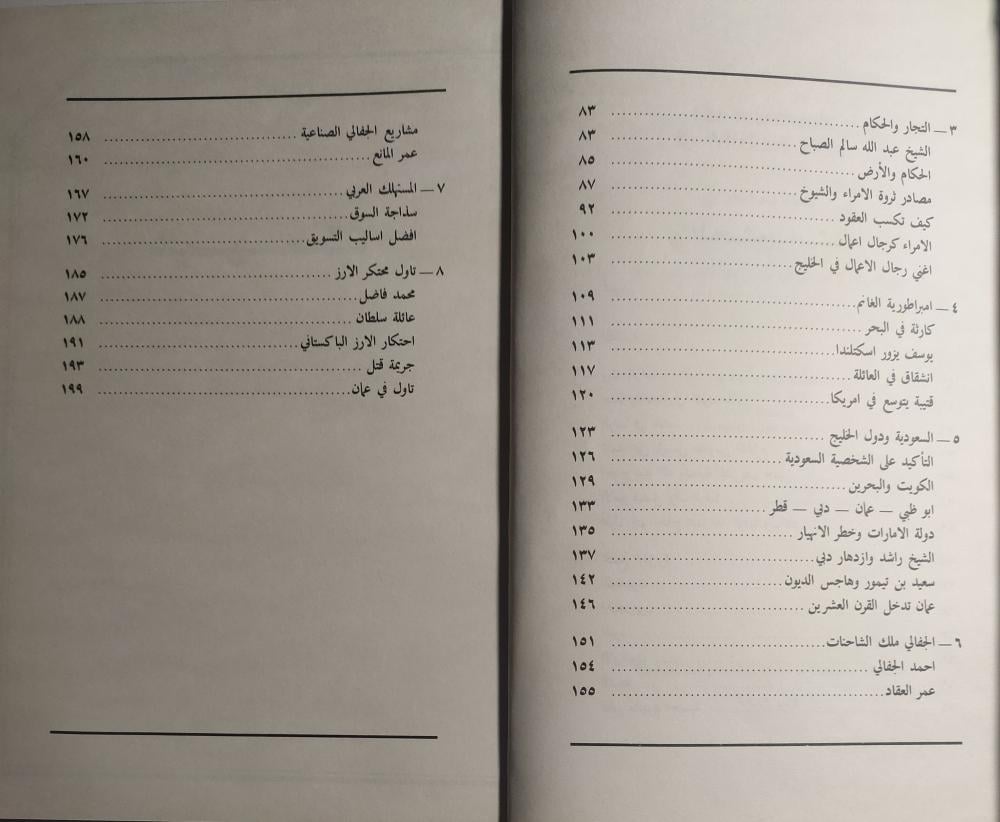 ٣ — التجار والحكام ........ ٨٣
الشيخ عبد الله سالم الصباح ........ ٨٣
الحكام والأرض ........ ٨٥
مصادر ثروة الامراء والشيوخ ........ ٨٧
كيف تكسب العقود ........ ٩٢
الامراء كرجال اعمال ........ ١٠٠
اغني رجال الاعمال في الخليج ........ ١٠٣
٤ — امبراطورية الغانم ........ ١٠٩
كارثة في البحر ........ ١١١
يوسف يزور اسكتلندا ........ ١١٣
انشقاق في العائلة ........ ١١٧
قتيبة يتوسع في امريكا ........ ١٢٠
٥ — السعودية ودول الخليج ........ ١٢٣
التأكيد على الشخصية السعودية ........ ١٢٦
الكويت والبحرين ........ ١٢٩
ابو ظبي — عمان — دبي — قطر ........ ١٣٣
دولة الامارات وخطر الانهيار ........ ١٣٥
الشيخ راشد وازدهار دبي ........ ١٣٧
سعيد بن تيمور وهاجس الديون ........ ١٤٢
عمان تدخل القرن العشرين ........ ١٤٦
٦ — الجفالي ملك الشاحنات ........ ١٥١
احمد الجفالي ........ ١٥٤
عمر العقاد ........ ١٥٥
مشاريع الجفالي الصناعية ........ ١٥٨
عمر المانع ........ ١٦٠
٧ — المستهلك العربي ........ ١٦٧
سذاجة السوق ........ ١٧٢
افضل اساليب التسويق ........ ١٧٦
٨ — تاول محتكر الارز ........ ١٨٥
محمد فاضل ........ ١٨٧
عائلة سلطان ........ ١٨٨
احتكار الارز الباكستاني ........ ١٩١
جريمة قتل ........ ١٩٣
تاول في عمان ........ ١٩٩